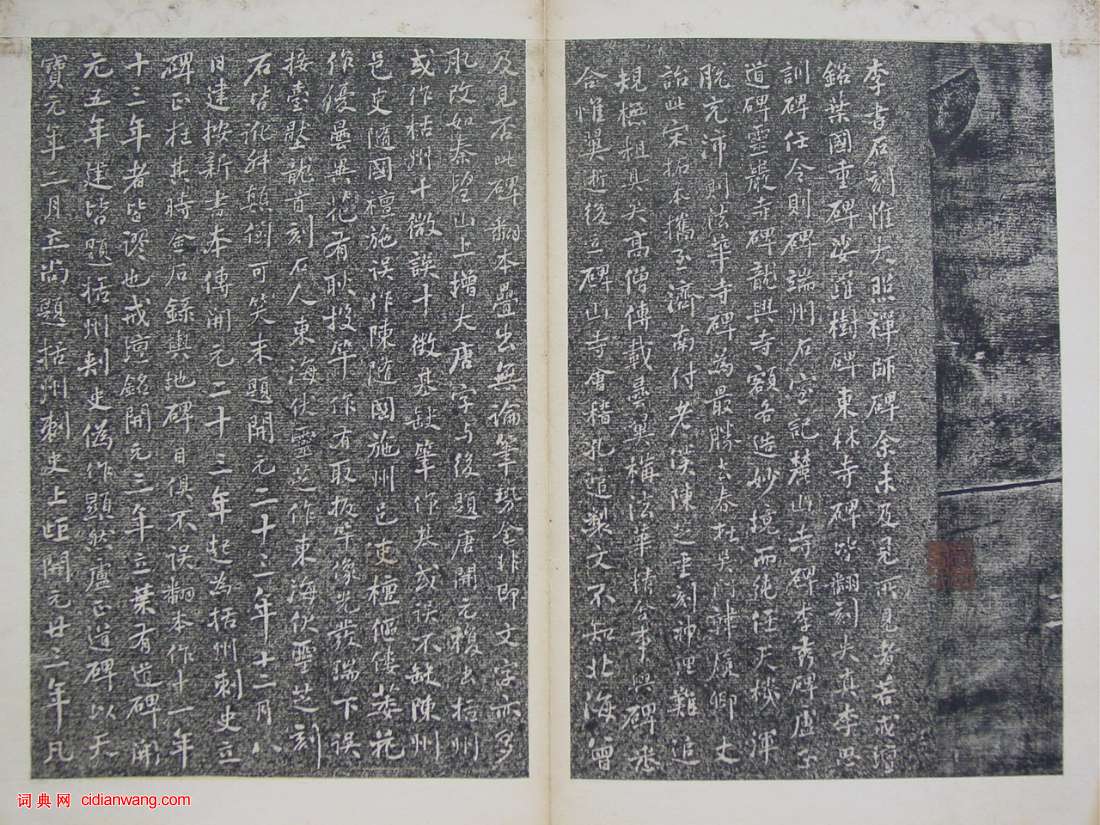 李書石刻惟大照禪師碑余未及見所見者若戒壇
銘葉國重碑娑羅樹碑東林寺碑皆翻刻大真李思
訓碑任令則碑端州石室記麓山寺碑李秀碑盧正
道碑靈巖寺碑龍興寺額各造妙境而純任天機渾
脫充沛則法華寺碑為最勝去春杜吳門神廎卿丈
詒此宋拓本攜至濟南付老漢陳之重刻神理難追
規橅粗具矣高僧傳載曇翼構法華精舍事與碑悉
合惟翼逝後立碑山寺會稽孔逭製文不知北海曾
及見否此碑翻本疊出無論筆勢全非即文字亦多
肊改如秦望山上增大唐字与後題唐開元複出括州
或作梏州十微誤十徵基缺筆作基或誤不缺陳州
邑吏隨國檀施誤作陳隨國施州邑吏檀傴僂萎花
作優曇異花有耿投竿作有取振竿像光發瑞下誤
接臺壓龍首刻石人東海伏靈芝作東海伏聖芝刻
石皆訛舛顛倒可笑末題開元二十三年十二月八
日建按新書本傳開元二十三年起為括州刺史立
碑正在其時金石錄輿地碑目俱不誤翻本作十一年
十三年者皆謬也戒壇銘開元三年立葉有道碑開
元五年建皆題括州刺史偽作顯然盧正道碑以天
寶元年二月立尚題括州刺史上距開元廿三年凡
词典网 cidianwang.com